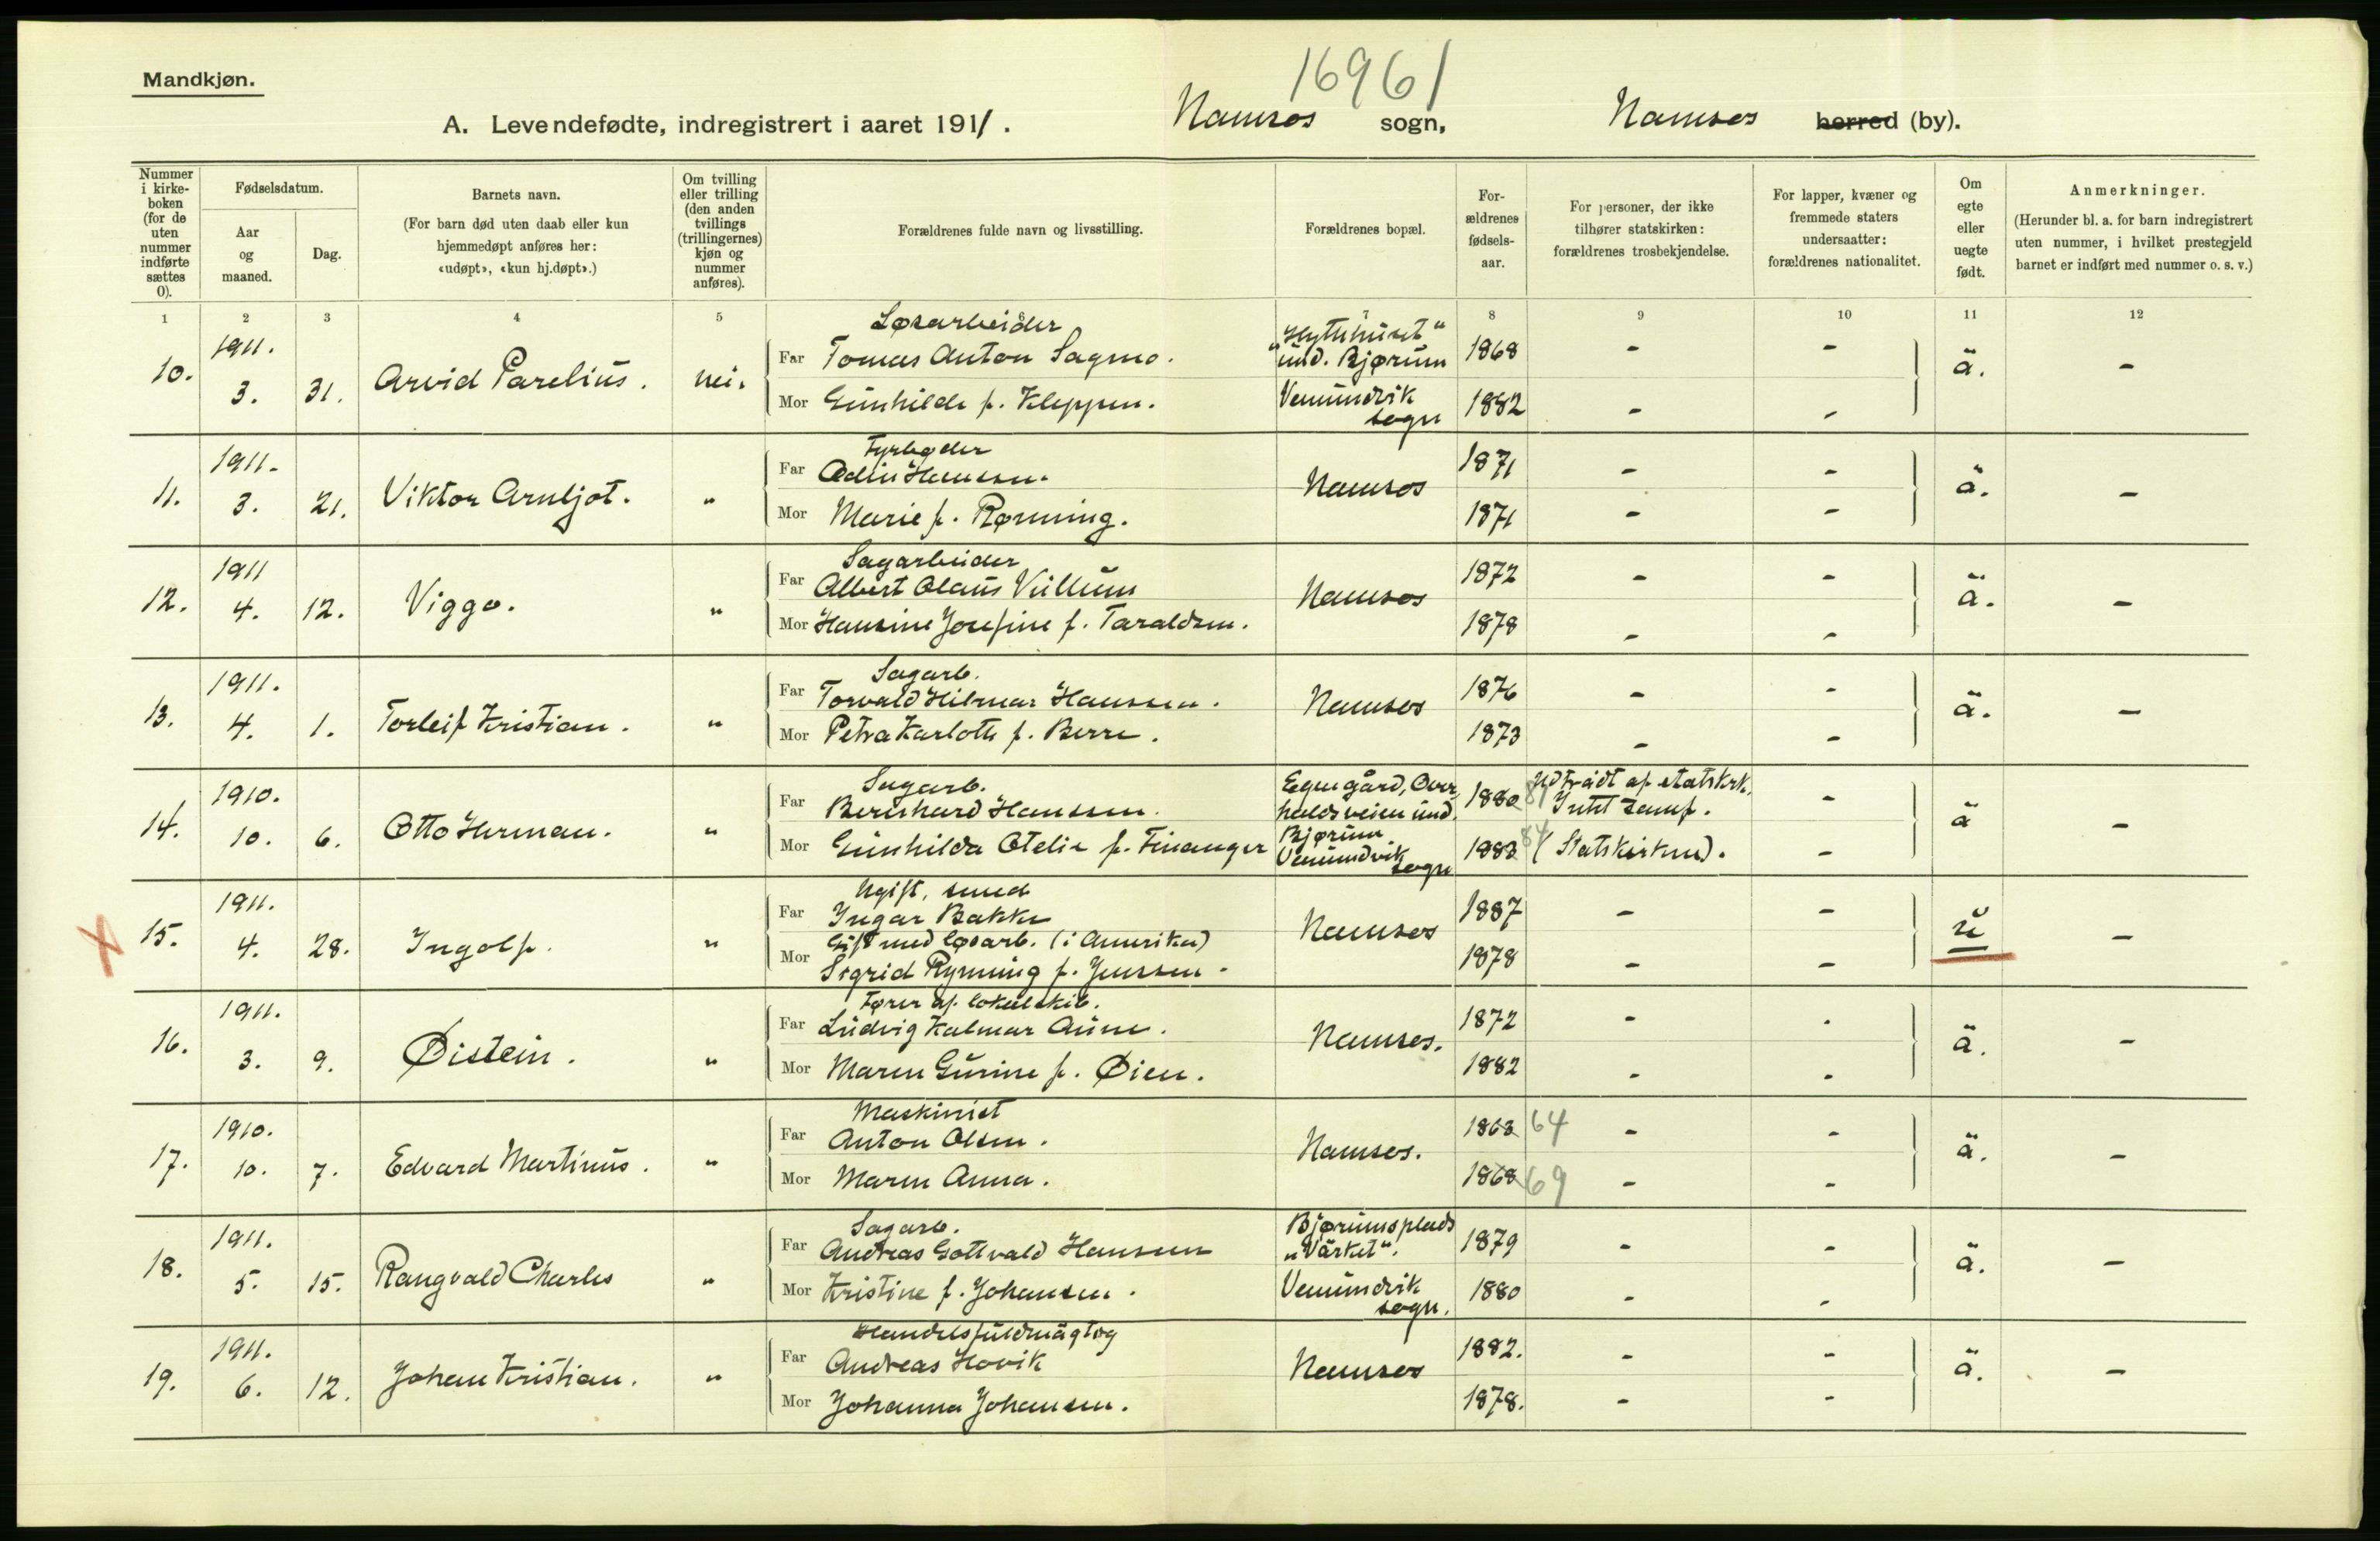 16961
Mandkjøn.
A. Levendefødte, indregistrert i aaret 1911.
Namsos sogn, Namsos herred (by).
Nummer i kirkeboken (for de uten nummer indførte sættes 0).
Fødselsdatum.
Aar og maaned.
Dag.
Barnets navn.
(For barn død uten daab eller kun hjemmedøpt anføres her: «udøpt», «kun hj.døpt».)
Om tvilling eller trilling (den anden tvillings (trillingernes) kjøn og nummer anføres).
Forældrenes fulde navn og livsstilling.
Forældrenes bopæl.
Forældrenes fødselsaar.
For personer, der ikke tilhører statskirken: forældrenes trosbekjendelse.
For lapper, kvæner og fremmede staters undersaatter: forældrenes nationalitet.
Om egte eller uegte født.
Anmerkninger.
(Herunder bl. a. for barn indregistrert uten nummer, i hvilket prestegjeld barnet er indført med nummer o. s. v.)
1 2 3 4 5 6 7 8 9 10 11 12
10. 1911. 3. 31. Arvid Parelius. nei.
Løsarbeider
Far Tomas Anton Sagmo. 1868 - -
Mor Gunhilde f. Kleppen. 1882 - -
"Hyttehuset" und. Bjørum Vemundvik sogn
ä. -
11. 1911. 3. 21. Viktor Arnljot. "
Fyrbøder
Far Odin Hansen. Namsos 1871 - -
Mor Marie f. Rønning. 1871 - -
ä. -
12. 1911 4. 12. Viggo. "
Sagarbeider
Far Albert Olaus Villum Namsos 1872 - -
Mor Hansine Josefine f. Taraldsen. 1878 - -
ä. -
13. 1911. 4. 1. Torleif Kristian. "
Sagarb.
Far Torvald Hilmar Hanssen. Namsos 1876 - -
Mor Petra Karlotte f. Berre. 1873 - -
ä. -
14. 1910. 10. 6. Otto Herman. "
Sagarb.
Far Bernhard Hanssen. 1880 81 Udtrådt af statskrk. Intet samf. -
Mor Gunhilda Otelie f. Finanger 1883 84 (Statskirken). -
Egen gård, Overhaldsveien und. Bjørum Vemundvik sogn
ä -
15. 1911. 4. 28. Ingolf. "
Ugift, smed
Far Ingar Bakke Namsos 1887 - -
Gift med løsarb. (i Amerika)
Mor Sigrid Rynning f. Jenssen. 1878 - -
u -
16. 1911. 3. 9. Øistein. "
Fører af lokalskib.
Far Ludvig Kalmar Aune. Namsos. 1872 - -
Mor Maren Gurine f. Øien. 1882 - -
ä. -
17. 1910. 10. 7. Edvard Martinus. "
Maskinist
Far Anton Olsen. Namsos. 1863 64 - -
Mor Maren Anna. 1868 69 - -
ä. -
18. 1911. 5. 15. Rangvald Charles "
Sagarb.
Far Andreas Gottvald Hansen 1879 - -
Mor Kristine f. Johansen. 1880 - -
Bjørumsplads "Värket". Vemundvik sogn.
ä. -
19. 1911. 6. 12. Johan Kristian. "
Handelsfuldmägtig
Far Andreas Hovik Namsos 1882. - -
Mor Johanna Johansen. 1878. - -
ä. -